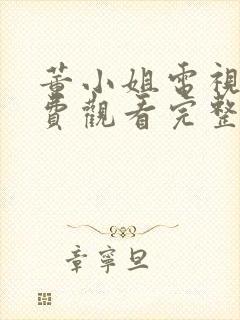 董小姐電視
費觀看完整
章寧旦